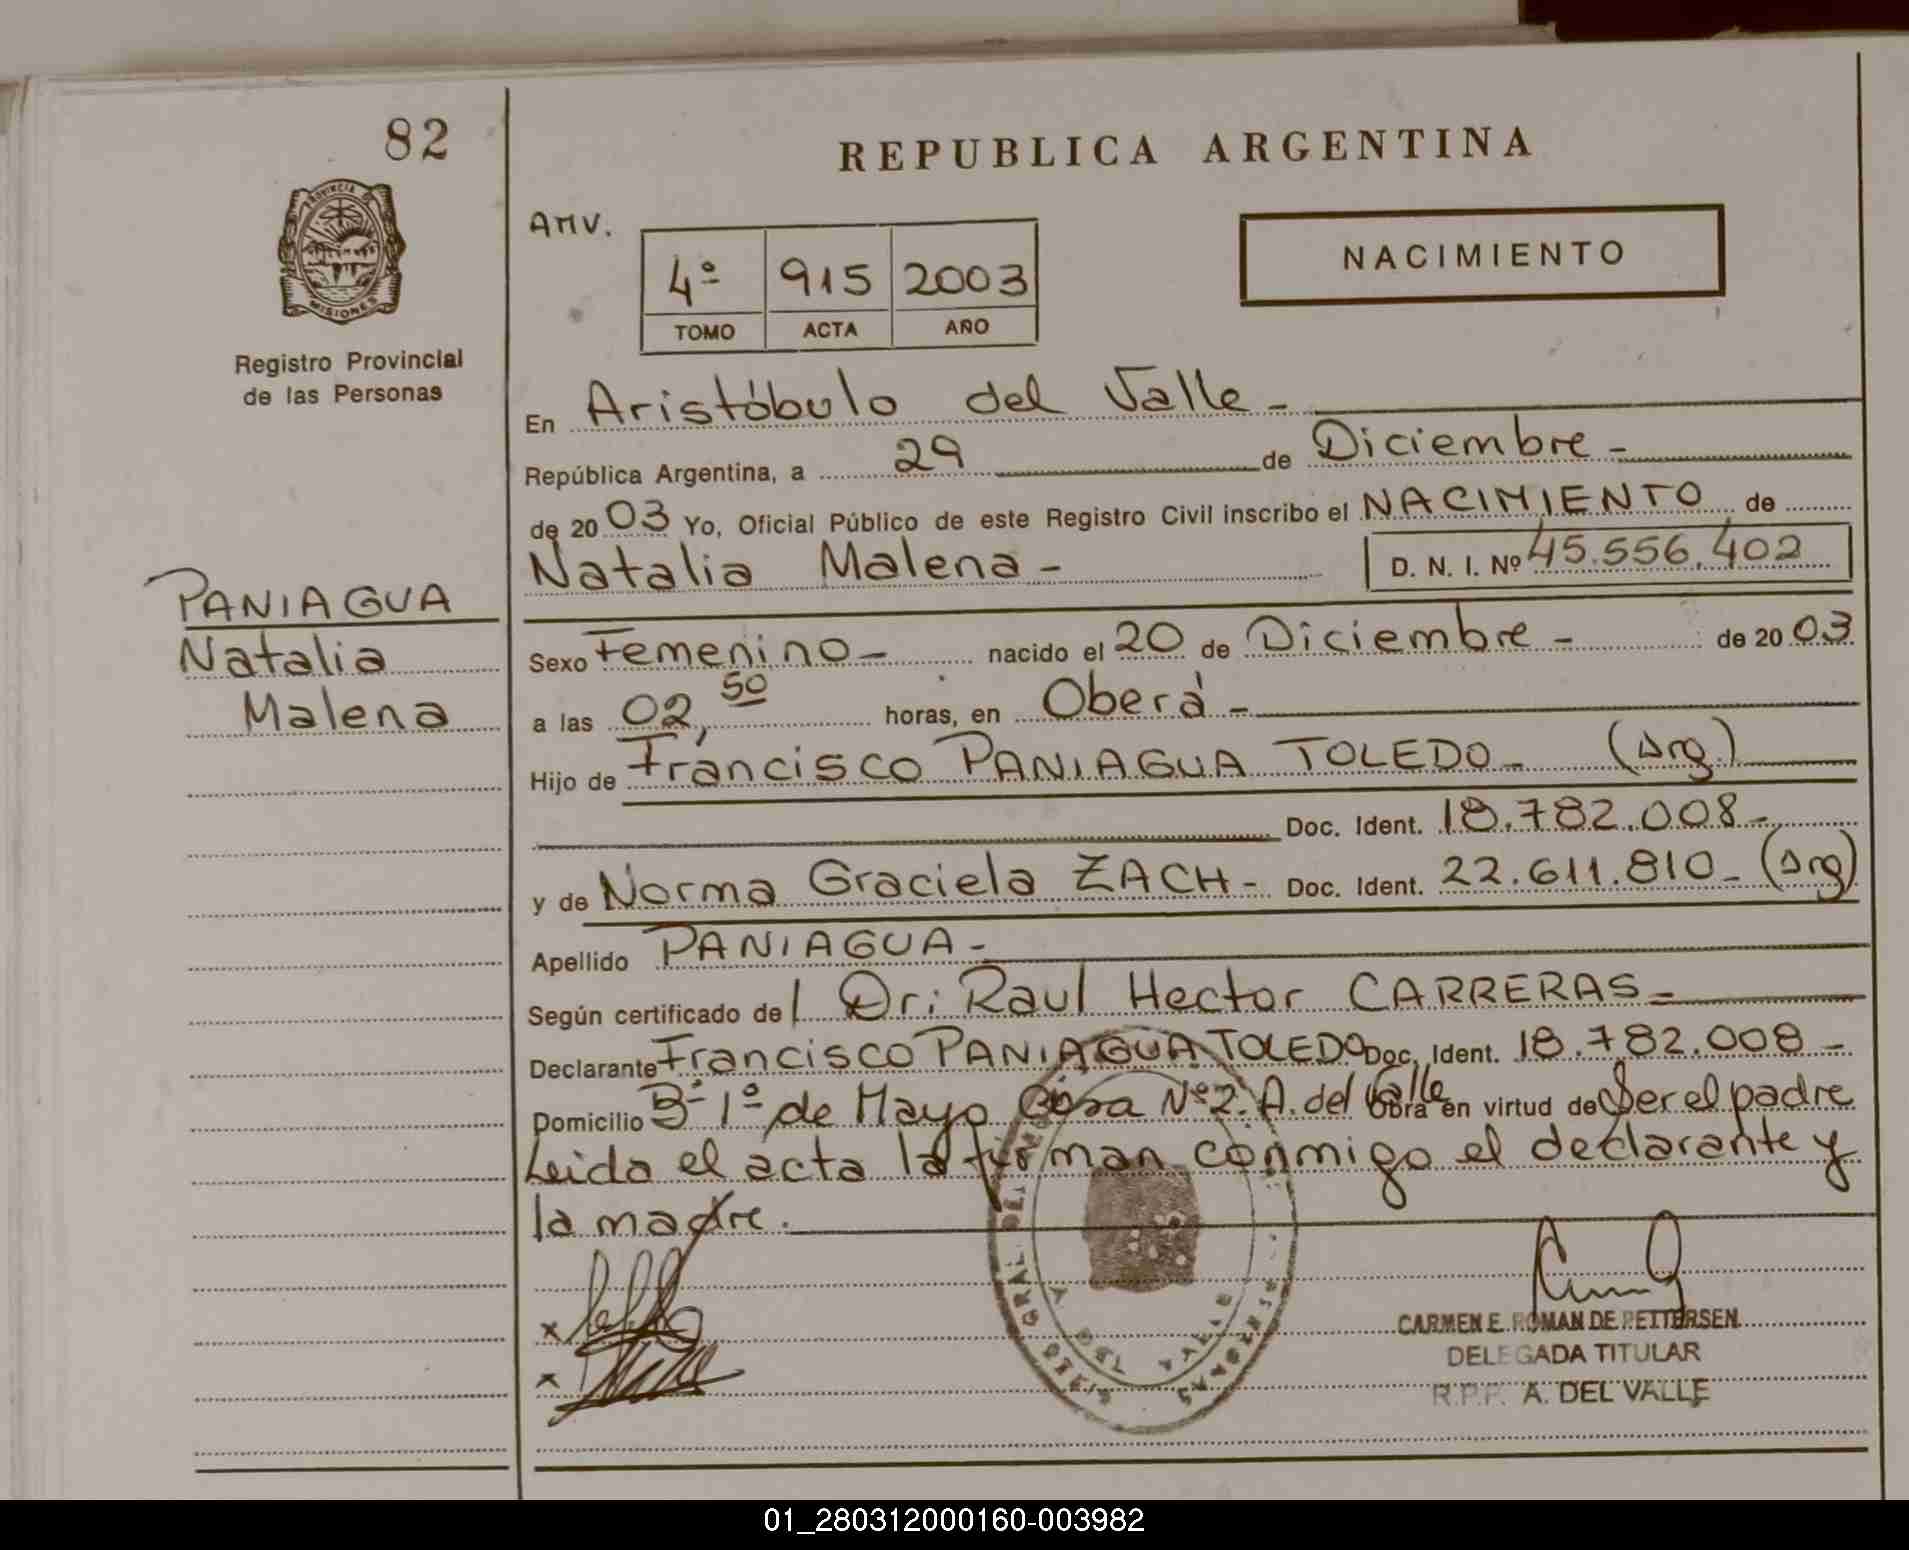 82
PROVINCIA
MISIONES
Registro Provincial
de las Personas
PANIAGUA
Natalia
Malena
REPUBLICA ARGENTINA
AMV.
4º 915 2003
TOMO ACTA AÑO
NACIMIENTO
En Aristóbulo del Valle -
República Argentina, a 29 de Diciembre -
de 20 03 Yo, Oficial Público de este Registro Civil inscribo el NACIMIENTO de
Natalia Malena - D. N. I. Nº 45.556.402
Sexo Femenino - nacido el 20 de Diciembre - de 20 03
a las 02,50 horas, en Oberá -
Hijo de Francisco PANIAGUA TOLEDO - (Arg)
Doc. Ident. 18.782.008 -
y de Norma Graciela ZACH - Doc. Ident. 22.611.810 - (Arg)
Apellido PANIAGUA -
Según certificado de l Dr: Raul Hector CARRERAS -
Declarante Francisco PANIAGUA TOLEDO Doc. Ident. 18.782.008 -
Domicilio Bº 1º de Mayo Casa Nº 2. A. del Valle Obra en virtud de Ser el padre
Leida el acta la firman conmigo el declarante y
la madre.
CARMEN E. ROMAN DE PETTERSEN
DELEGADA TITULAR
R.P.P. A. DEL VALLE
01_280312000160-003982